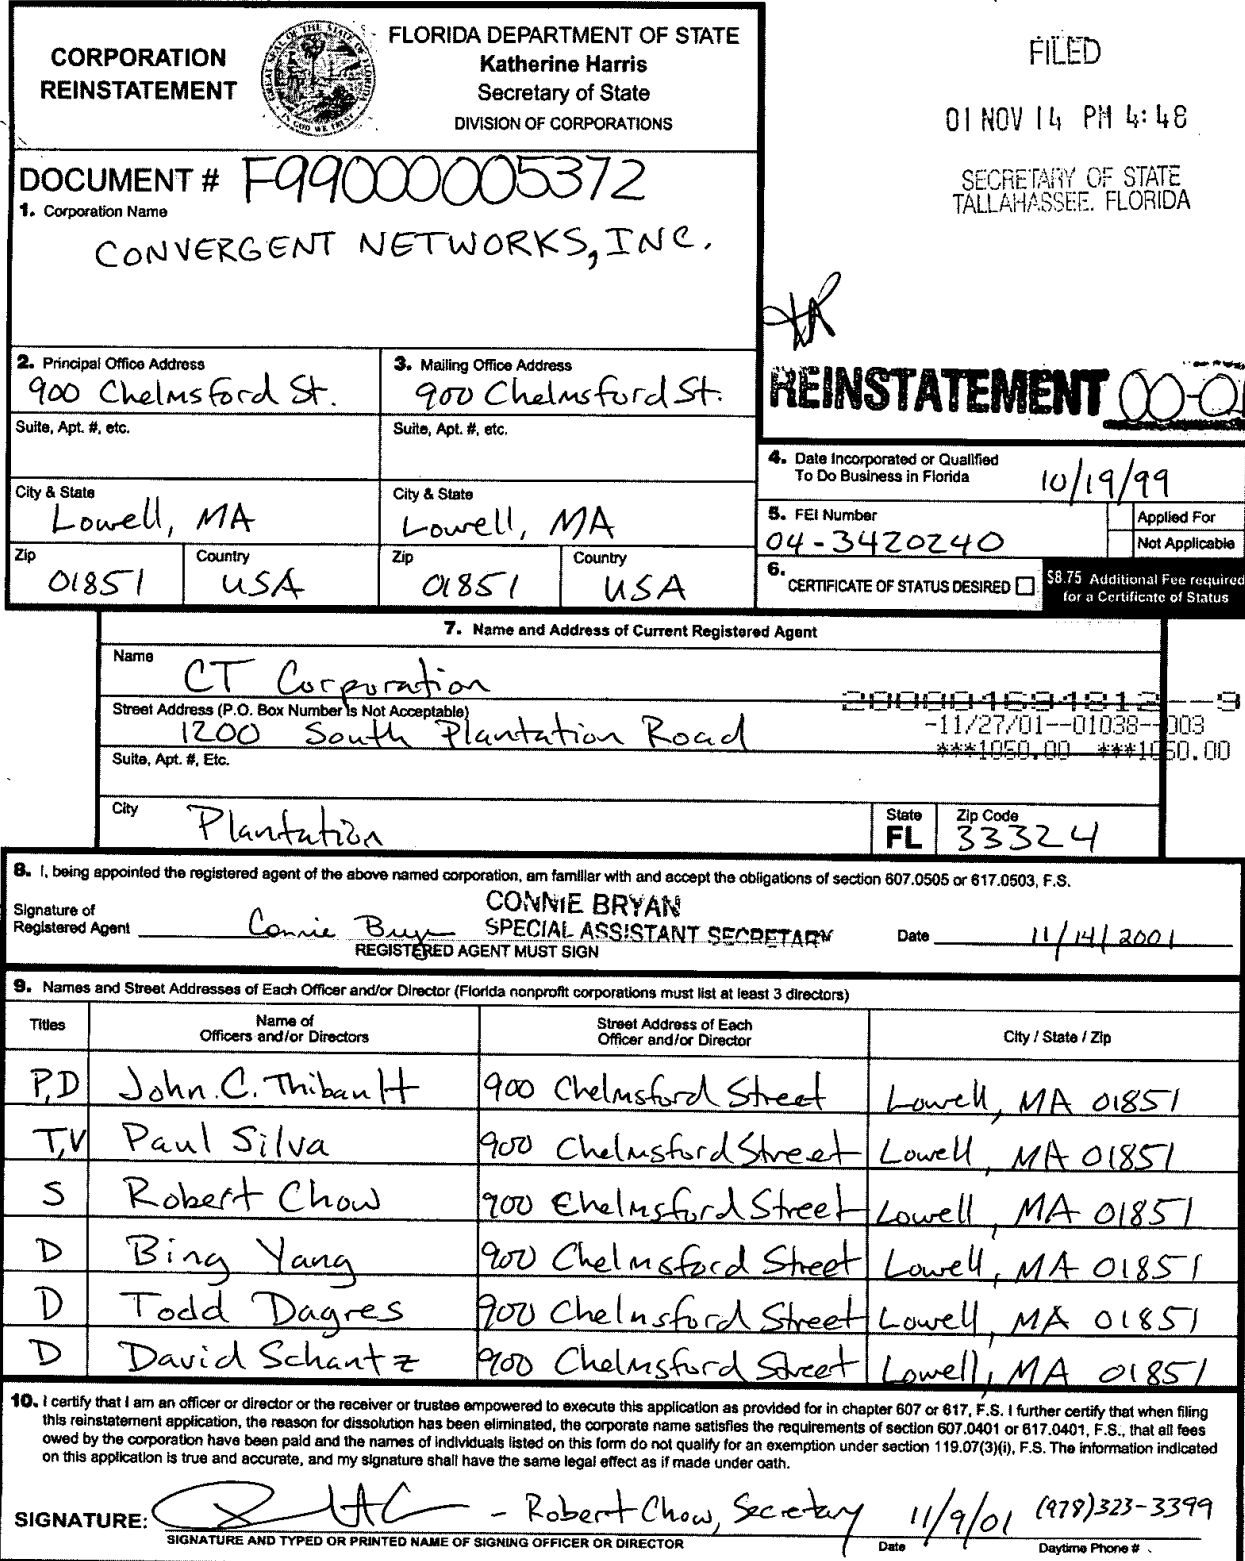 CORPORATION
REINSTATEMENT
FLORIDA DEPARTMENT OF STATE
Katherine Harris
Secretary of State
DIVISION OF CORPORATIONS
FILED
01 NOV 14 PM 4:48
SECRETARY OF STATE
TALLAHASSEE, FLORIDA
DOCUMENT # F99000005372
1. Corporation Name
CONVERGENT NETWORKS, INC.
REINSTATEMENT 00-01
2. Principal Office Address
900 Chelmsford St.
3. Mailing Office Address
900 Chelmsford St.
Suite, Apt. #, etc.
Suite, Apt. #, etc.
City & State
Lowell, MA
City & State
Lowell, MA
Zip
01851
Country
USA
Zip
01851
Country
USA
4. Date Incorporated or Qualified
To Do Business in Florida
10/19/99
5. FEI Number
04-3420240
Applied For
Not Applicable
6.
CERTIFICATE OF STATUS DESIRED
$8.75 Additional Fee required
for a Certificate of Status
7. Name and Address of Current Registered Agent
Name
CT Corporation
Street Address (P.O. Box Number is Not Acceptable)
1200 South Plantation Road
200004694812--9
-11/27/01--01038--003
***1050.00 ***1050.00
Suite, Apt. #, Etc.
City
Plantation
State
FL
Zip Code
33324
8. I, being appointed the registered agent of the above named corporation, am familiar with and accept the obligations of section 607.0505 or 617.0503, F.S.
Signature of
Registered Agent
Connie Bryan
CONNIE BRYAN
SPECIAL ASSISTANT SECRETARY
Date 11/14/2001
REGISTERED AGENT MUST SIGN
9. Names and Street Addresses of Each Officer and/or Director (Florida nonprofit corporations must list at least 3 directors)
Titles
Name of
Officers and/or Directors
Street Address of Each
Officer and/or Director
City / State / Zip
P,D John C. Thibault 900 Chelmsford Street Lowell, MA 01851
T,V Paul Silva 900 Chelmsford Street Lowell, MA 01851
S Robert Chow 900 Chelmsford Street Lowell, MA 01851
D Bing Yang 900 Chelmsford Street Lowell, MA 01851
D Todd Dagres 900 Chelmsford Street Lowell, MA 01851
D David Schantz 900 Chelmsford Street Lowell, MA 01851
10. I certify that I am an officer or director or the receiver or trustee empowered to execute this application as provided for in chapter 607 or 617, F.S. I further certify that when filing
this reinstatement application, the reason for dissolution has been eliminated, the corporate name satisfies the requirements of section 607.0401 or 617.0401, F.S., that all fees
owed by the corporation have been paid and the names of individuals listed on this form do not qualify for an exemption under section 119.07(3)(i), F.S. The information indicated
on this application is true and accurate, and my signature shall have the same legal effect as if made under oath.
SIGNATURE: - Robert Chow, Secretary 11/9/01 (978)323-3399
SIGNATURE AND TYPED OR PRINTED NAME OF SIGNING OFFICER OR DIRECTOR
Date
Daytime Phone #